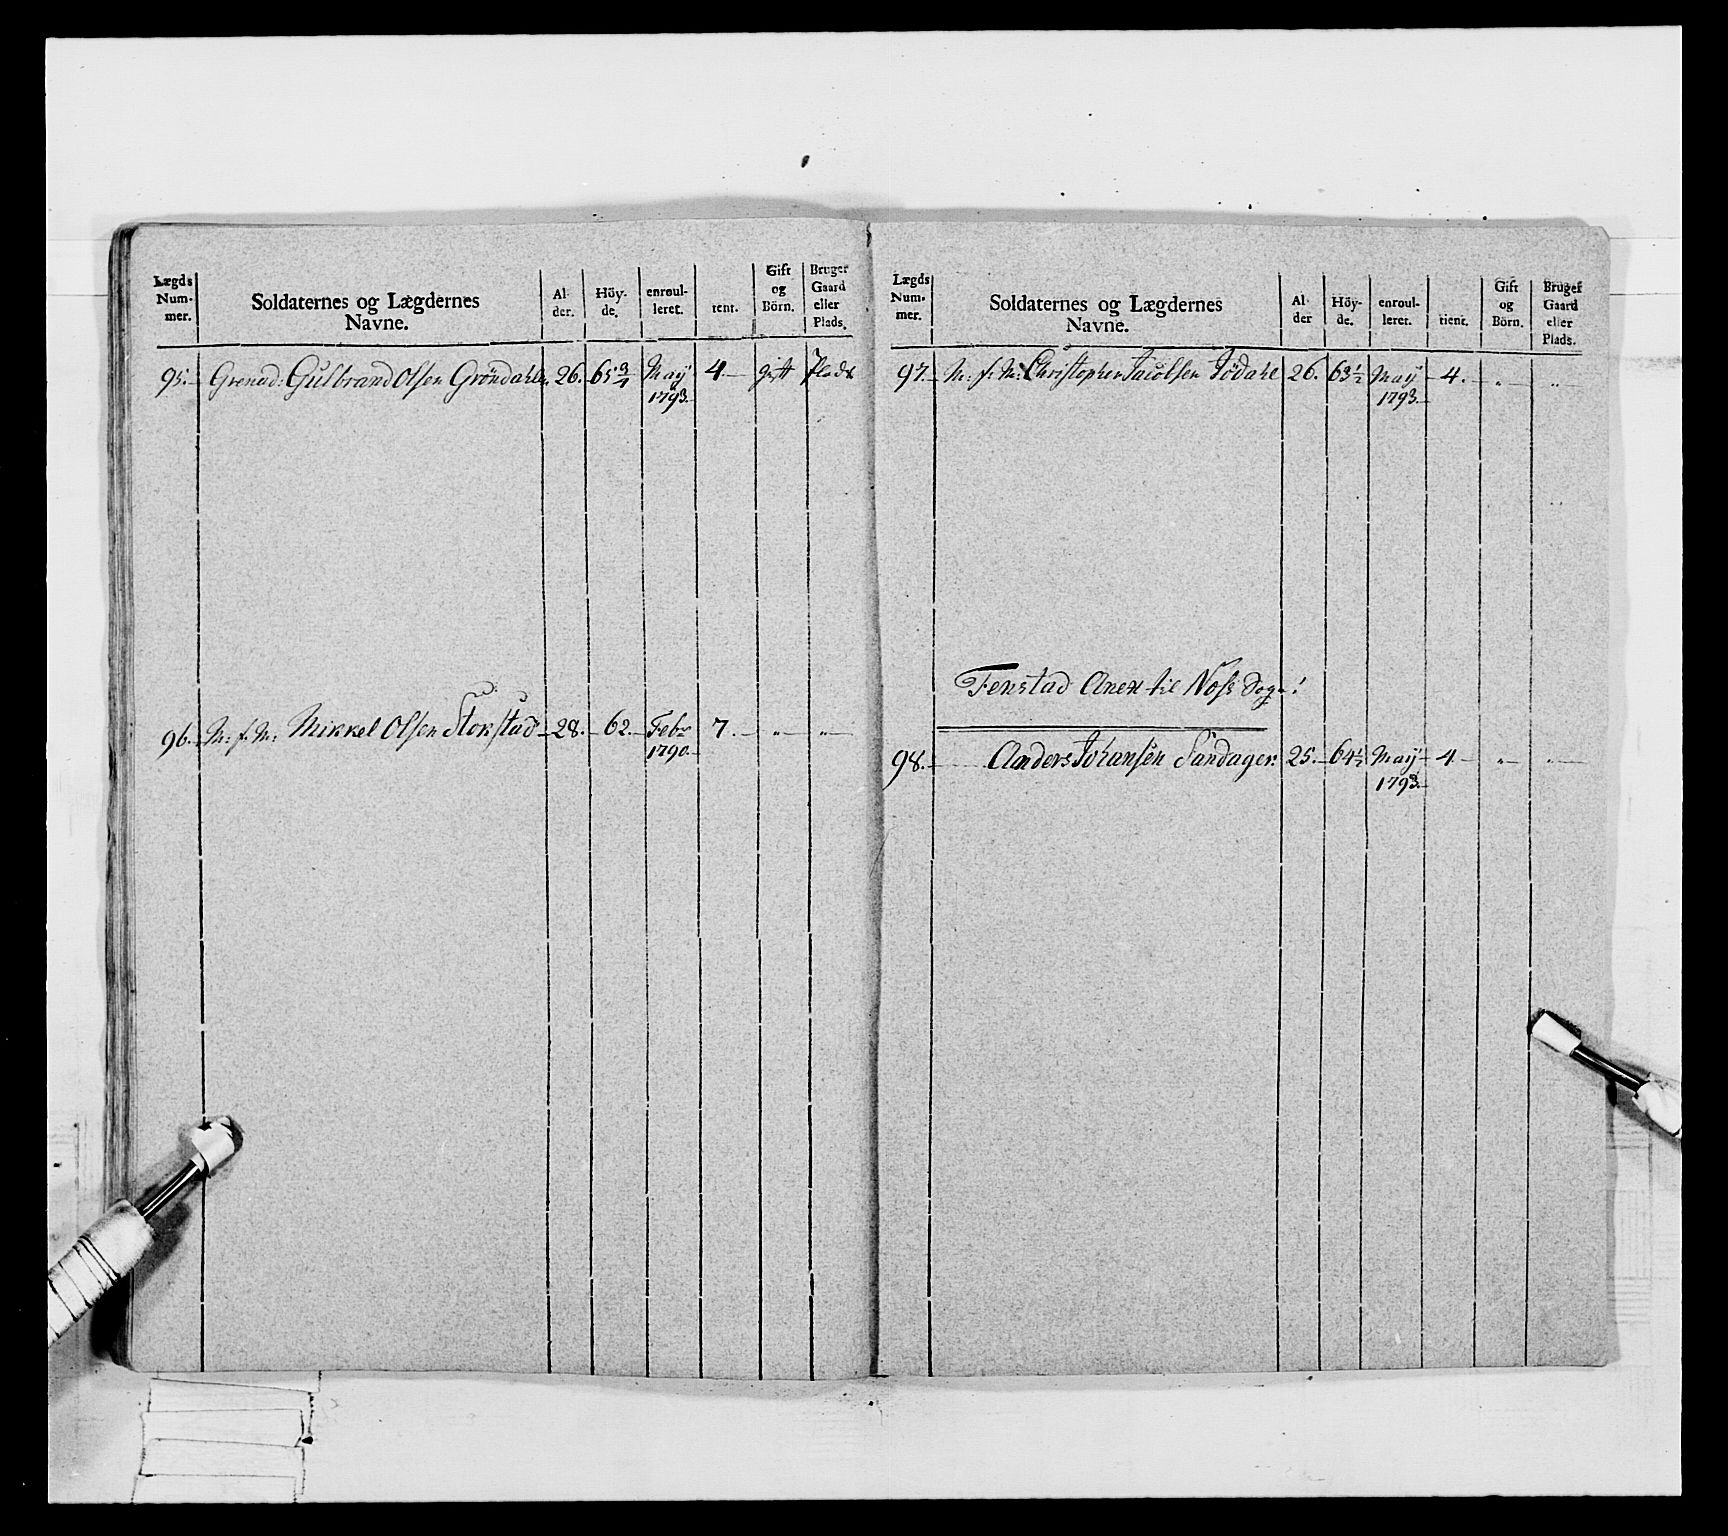 Lægds Num- mer. Soldaternes og Lægdernes Navne. Al- der. Höy- de. enroul- leret. tent. Gift og Börn. Bruger Gaard eller Plads.
95. Grenad: Gulbrand Olsen Gröndahl 26. 65 3/4 May 1793. 4. gift Plads
96. M: f: M: Mikkel Olsen Stokstad 28. 62. Febr 1790. 7. „ „
Lægds Num- mer. Soldaternes og Lægdernes Navne. Al- der Höy- de. enroul- leret. tient. Gift og Börn. Bruger Gaard eller Plads.
97. M: f: M: Christopher Jacobsen Jödahl 26. 63 1/2 May 1793. 4. „ „
Fenstad Anex til Nœss Sogn!
98. Anders Johansen Sandager 25. 64 1/2 May 1793. 4. „ „